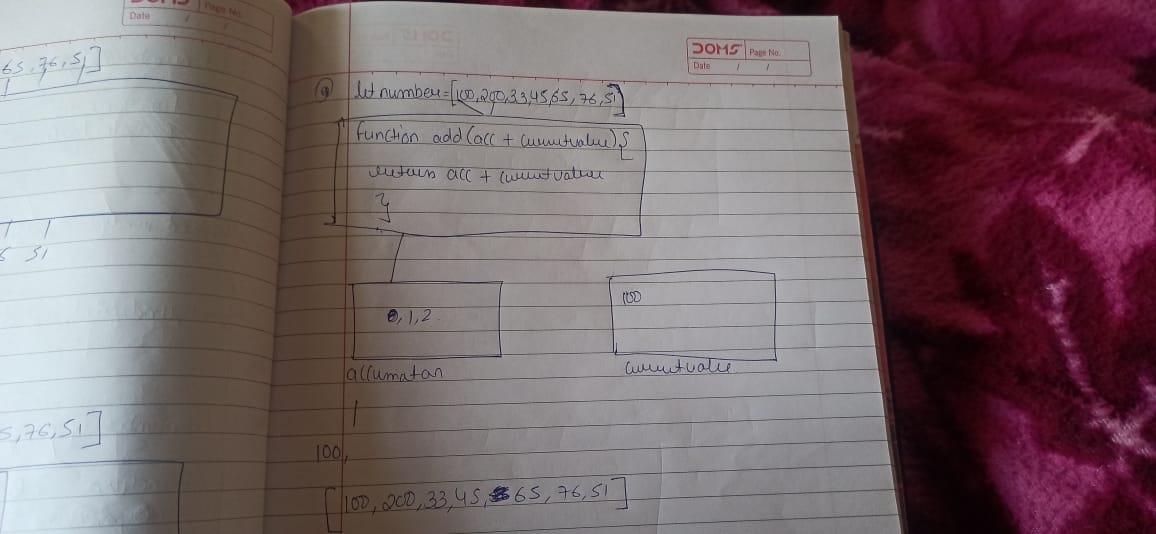 DOMS Page No.
Date / /
65, 76, 51]
51
5, 76, 51]
DOMS Page No.
Date / /
let number=[100,200,33,45,65, 76, 51]
function add(acc + currentvalue){
return acc + currentvalue
}
0, 1, 2
100
accumatan
currentvalue
100,
[100, 200, 33, 45, 65, 76, 51]